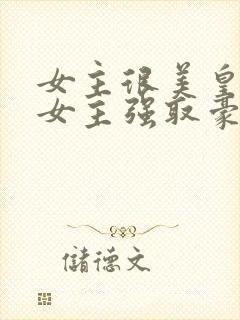 女主很美皇
女主强取豪
储德文